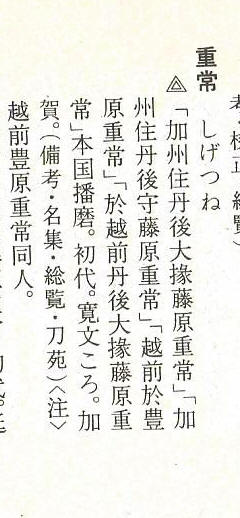 考・校正・総覧）
重常
しげつね
「加州住丹後大掾藤原重常」「加
州住丹後守藤原重常」「越前於豊
原重常」「於越前丹後大掾藤原重
常」本国播磨。初代。寛文ころ。加
賀。（備考・名集・総覧・刀苑）〈注〉
越前豊原重常同人。